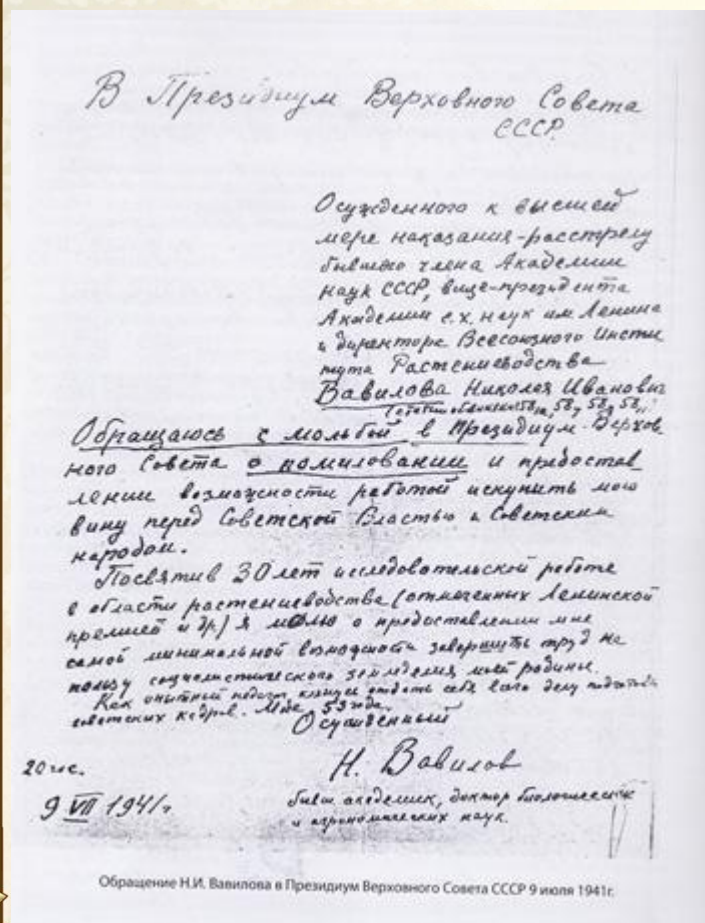 В Президиум Верховного Совета
СССР.
Осужденного к высшей
мере наказания-расстрелу
бывшего члена Академии
наук СССР, вице-президента
Академии с.х. наук им. Ленина
и директора Всесоюзного Инсти
тута Растениеводства
Вавилова Николая Ивановича
Обращаюсь с мольбой в Президиум Верхов
ного Совета о помиловании и предостав
лении возможности работой искупить мою
вину перед Советской Властью и Советским
народом.
Посвятив 30 лет исследовательской работе
в области растениеводства (отмеченных Ленинской
премией и др) я молю о предоставлении мне
самой минимальной возможности завершить труд на
пользу социалистического земледелия моей родины.
Как опытный педагог клянусь отдать себя всего делу подготовки
советских кадров. Мне 53 года.
Осужденный
20 час.
Н. Вавилов
9 VII 1941г
бывш. академик, доктор биологических
и агрономических наук.
Обращение Н.И. Вавилова в Президиум Верховного Совета СССР 9 июля 1941г.